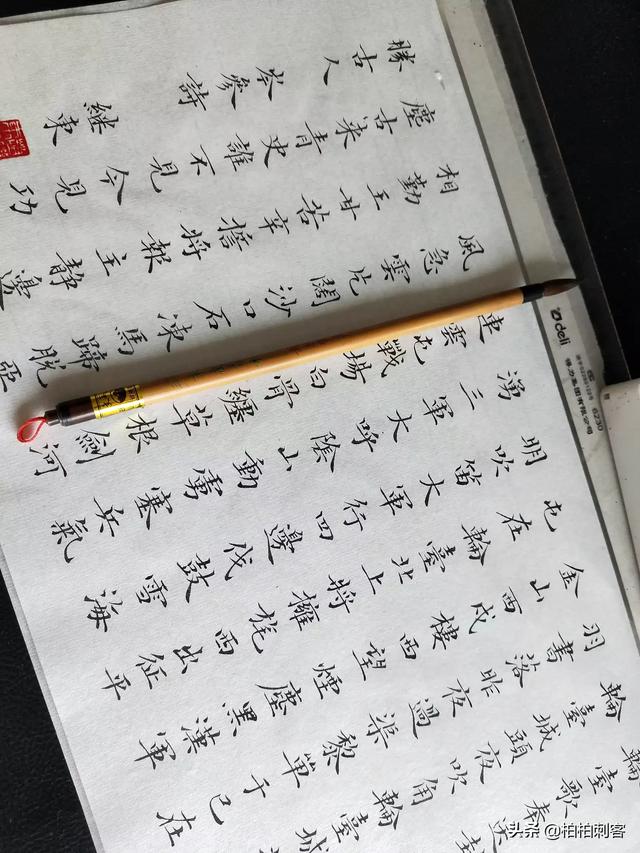 輪臺歌奉送
輪臺城頭夜吹角輪臺城
羽書落昨夜過渠黎單于已在
金山西戍樓西望煙塵黑漢軍
屯在輪臺北上將擁旄西出征平
明吹笛大軍行四邊伐鼓雪海
湧三軍大呼陰山動虜塞兵氣
連雲屯戰場白骨纏草根劍河
風急雲片闊沙口石凍馬蹄脫亞
相勤王甘苦辛誓將報主靜邊
塵古來青史誰不見今見功
勝古人
岑參詩
繼東
deli
6230
头条 @柏柏刺客